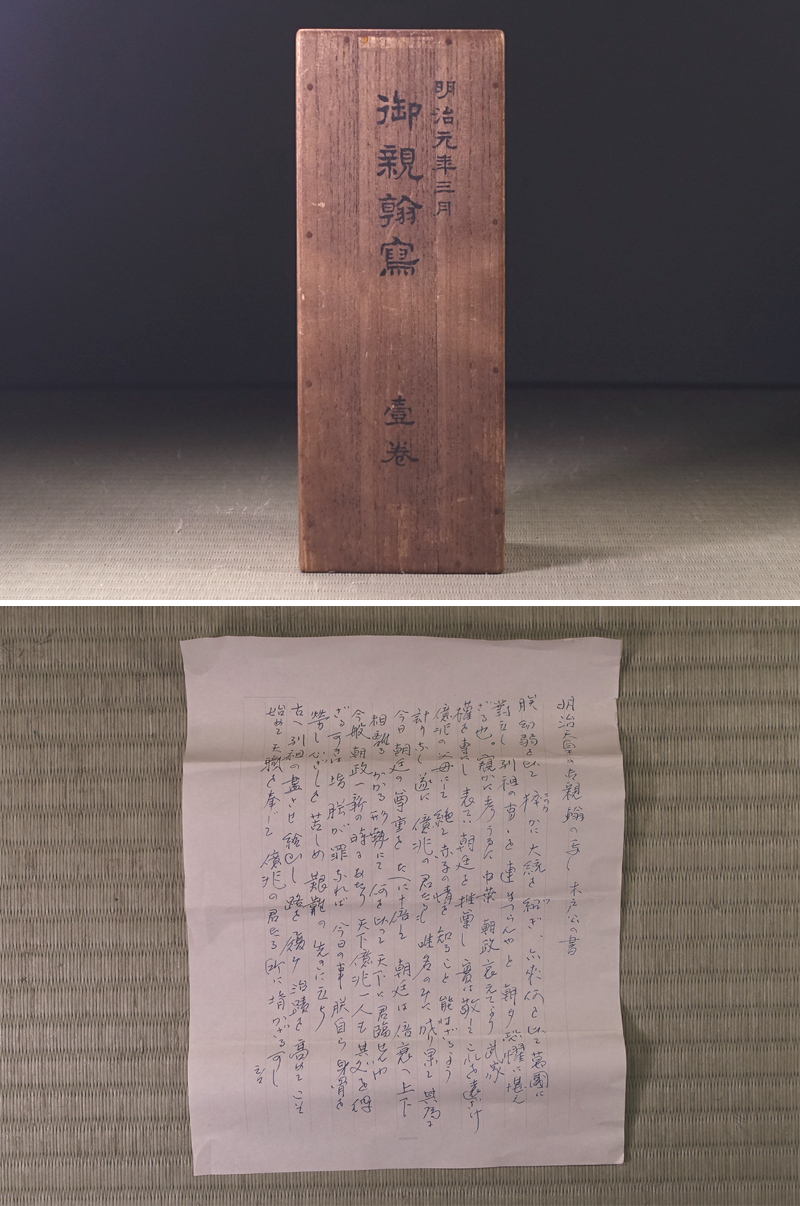 明治元年三月
御親翰寫
壹卷
明治天皇の御親翰の写し 木戸公の書
朕幼弱を以て猝かに大統を紹ぎ、爾来何を以て萬國に
対立し列祖の事へ奉つらんやと朝夕恐懼に堪え
ざる也。竊かに考うるに中葉朝政衰えてより武家
權を専らし表てに朝廷を推尊し實は敬して是を遠ざけ
億兆の父母にして絶えて赤子の情を知ること能はざるよう
計りなし遂に億兆の君たるも唯名のみに成り果て其為に
今日朝廷の尊重は古へに十倍して朝廷は倍衰へ上下
相離るかかる形勢にて何を以って天下に君臨せんや
今般朝政一新の時にあたり天下億兆一人も其處を得
ざる時は皆朕が罪なれば今日の事朕自ら身骨を
労し心志を苦しめ艱難の先きに立ち
古へ列祖の盡させ給ひし蹤を履み治蹟を勗めてこそ
始めて天職を奉じて億兆の君たる所に背かざるべし